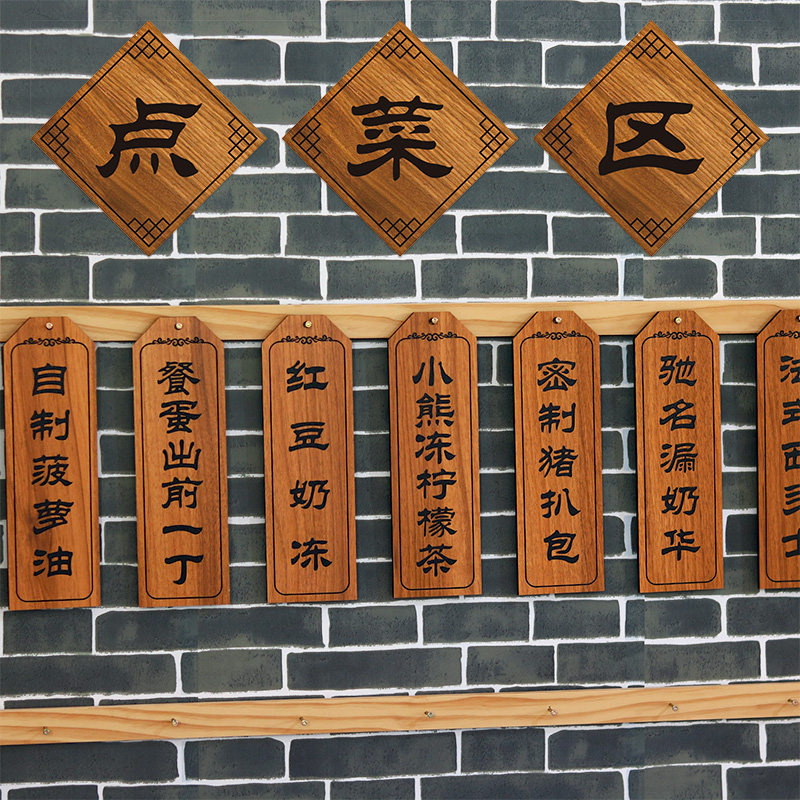 点菜区
自制菠萝油
餐蛋出前一丁
红豆奶冻
小熊冻柠檬茶
密制猪扒包
驰名漏奶华
法式西多士